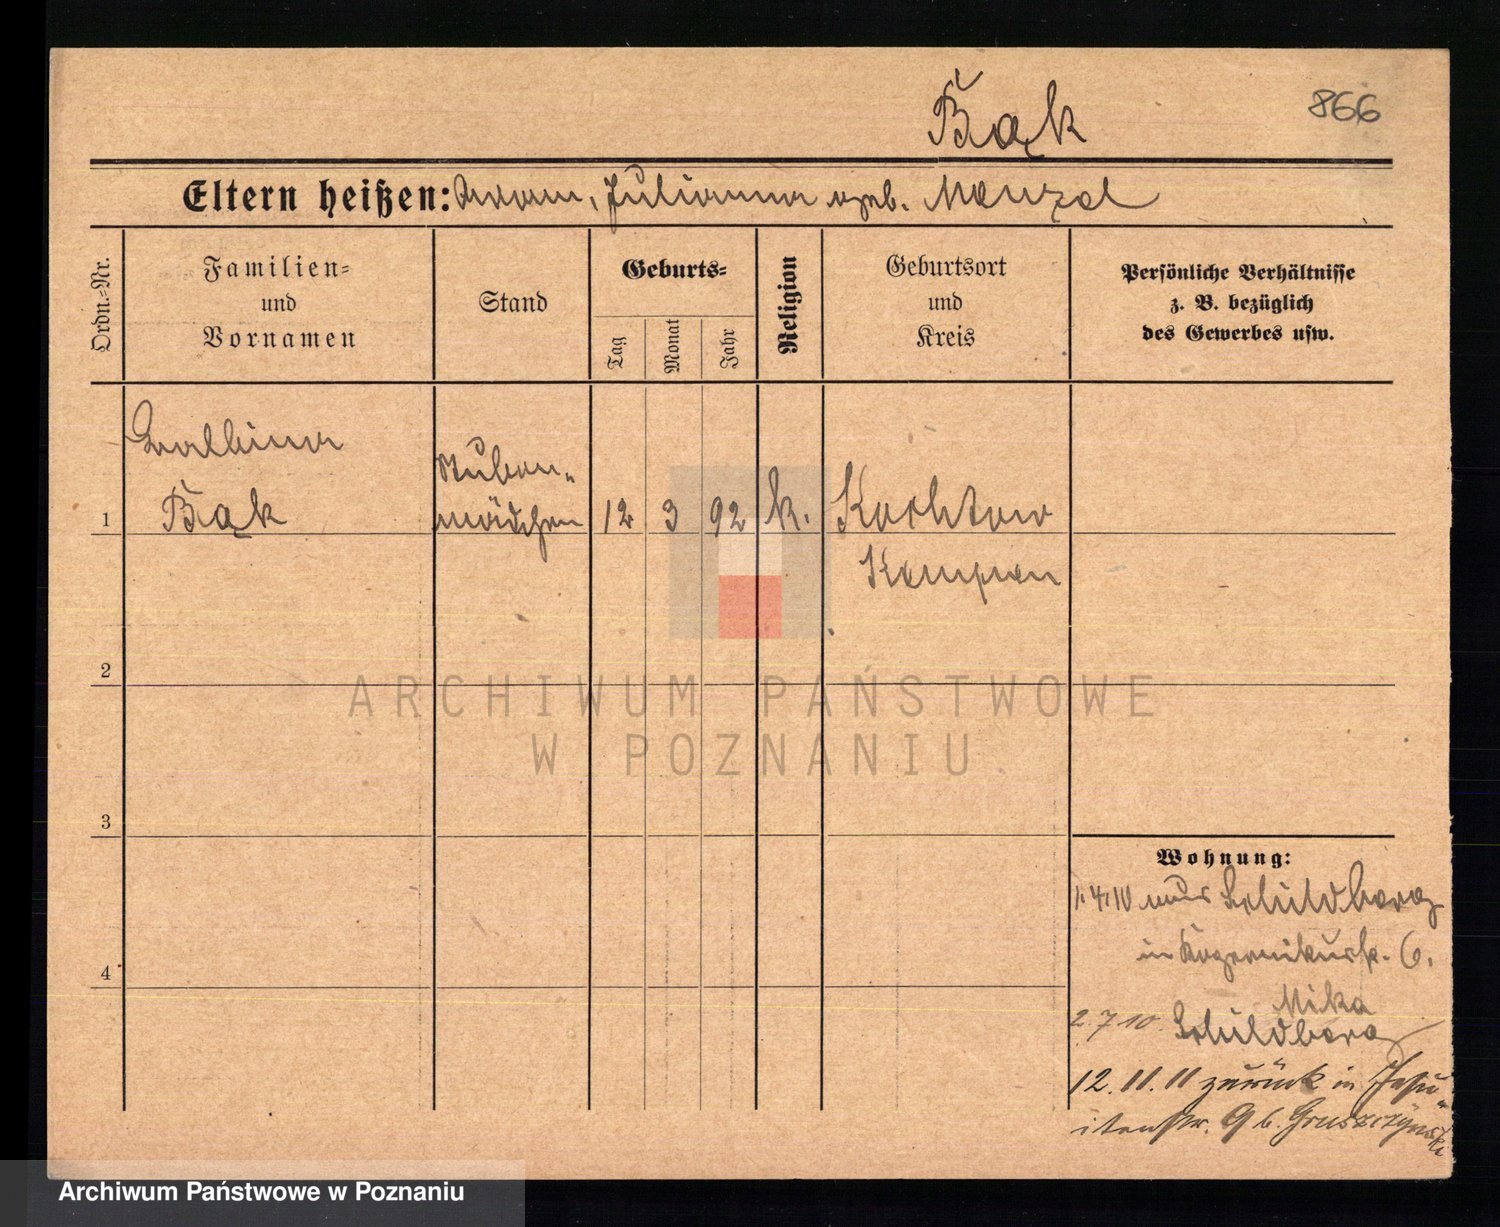 Bąk
866
Eltern heißen: Adam, Julianna geb. Menzel
Ordn.-Nr.
Familien-
und
Vornamen
Stand
Geburts-
Tag
Monat
Jahr
Religion
Geburtsort
und
Kreis
Persönliche Verhältnisse
z. B. bezüglich
des Gewerbes usw.
Balbina
Bąk
Stuben-
mädchen
1
12
3
92
k.
Kochlow
Kempen
2
3
4
Wohnung:
1.4.10 aus Schildberg
in 6.
Mika
2 7 10 Schildberg
12. 11. 11 zurück in Jesu-
itenstr. 9 b. Gruszczynski
ARCHIWUM PAŃSTWOWE
W POZNANIU
Archiwum Państwowe w Poznaniu